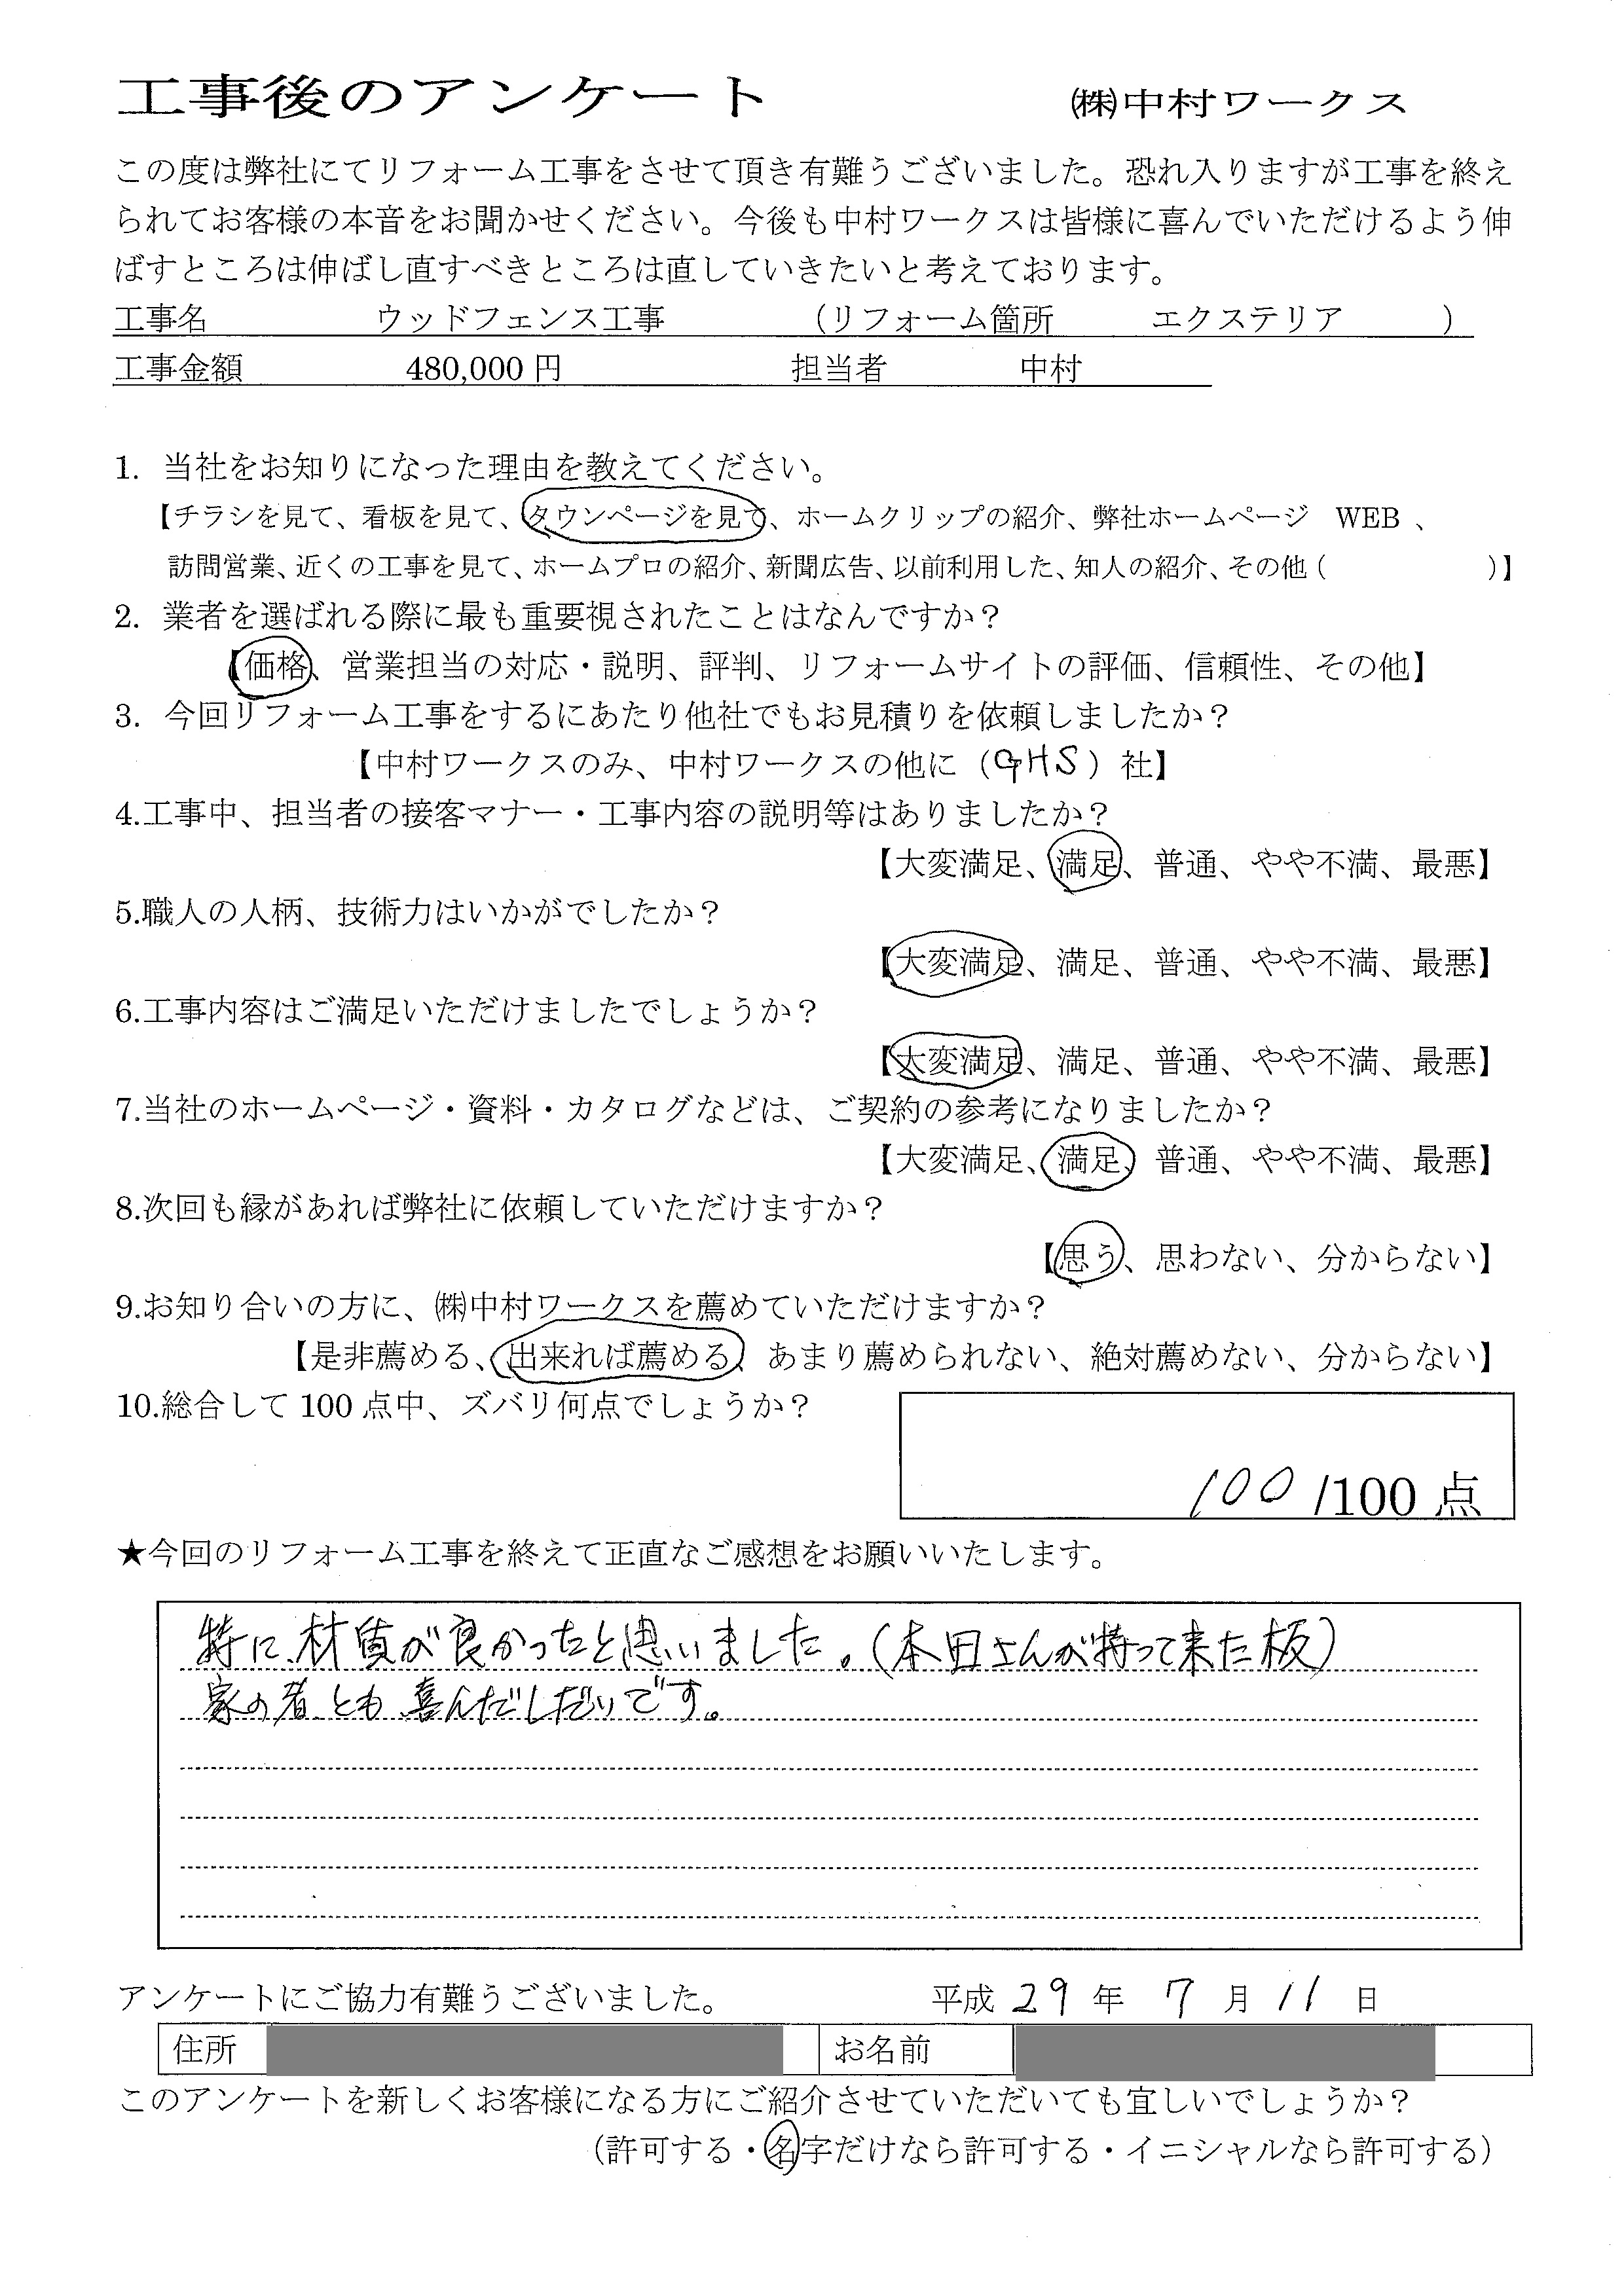 工事後のアンケート ㈱中村ワークス
この度は弊社にてリフォーム工事をさせて頂き有難うございました。恐れ入りますが工事を終え
られてお客様の本音をお聞かせください。今後も中村ワークスは皆様に喜んでいただけるよう伸
ばすところは伸ばし直すべきところは直していきたいと考えております。
工事名 ウッドフェンス工事 (リフォーム箇所 エクステリア )
工事金額 480,000円 担当者 中村
1. 当社をお知りになった理由を教えてください。
【チラシを見て、看板を見て、タウンページを見て、ホームクリップの紹介、弊社ホームページ WEB、
訪問営業、近くの工事を見て、ホームプロの紹介、新聞広告、以前利用した、知人の紹介、その他( )】
2. 業者を選ばれる際に最も重要視されたことはなんですか?
【価格、営業担当の対応・説明、評判、リフォームサイトの評価、信頼性、その他】
3. 今回リフォーム工事をするにあたり他社でもお見積りを依頼しましたか?
【中村ワークスのみ、中村ワークスの他に(GHS)社】
4.工事中、担当者の接客マナー・工事内容の説明等はありましたか?
【大変満足、満足、普通、やや不満、最悪】
5.職人の人柄、技術力はいかがでしたか?
【大変満足、満足、普通、やや不満、最悪】
6.工事内容はご満足いただけましたでしょうか?
【大変満足、満足、普通、やや不満、最悪】
7.当社のホームページ・資料・カタログなどは、ご契約の参考になりましたか?
【大変満足、満足、普通、やや不満、最悪】
8.次回も縁があれば弊社に依頼していただけますか?
【思う、思わない、分からない】
9.お知り合いの方に、㈱中村ワークスを薦めていただけますか?
【是非薦める、出来れば薦める、あまり薦められない、絶対薦めない、分からない】
10.総合して100点中、ズバリ何点でしょうか?
100 /100点
★今回のリフォーム工事を終えて正直なご感想をお願いいたします。
特に、材質が良かったと思いました。(本田さんが持って来た板)
家の者とも喜んだしだいです。
アンケートにご協力有難うございました。 平成 29 年 7 月 11 日
住所 お名前
このアンケートを新しくお客様になる方にご紹介させていただいても宜しいでしょうか?
(許可する・名字だけなら許可する・イニシャルなら許可する)